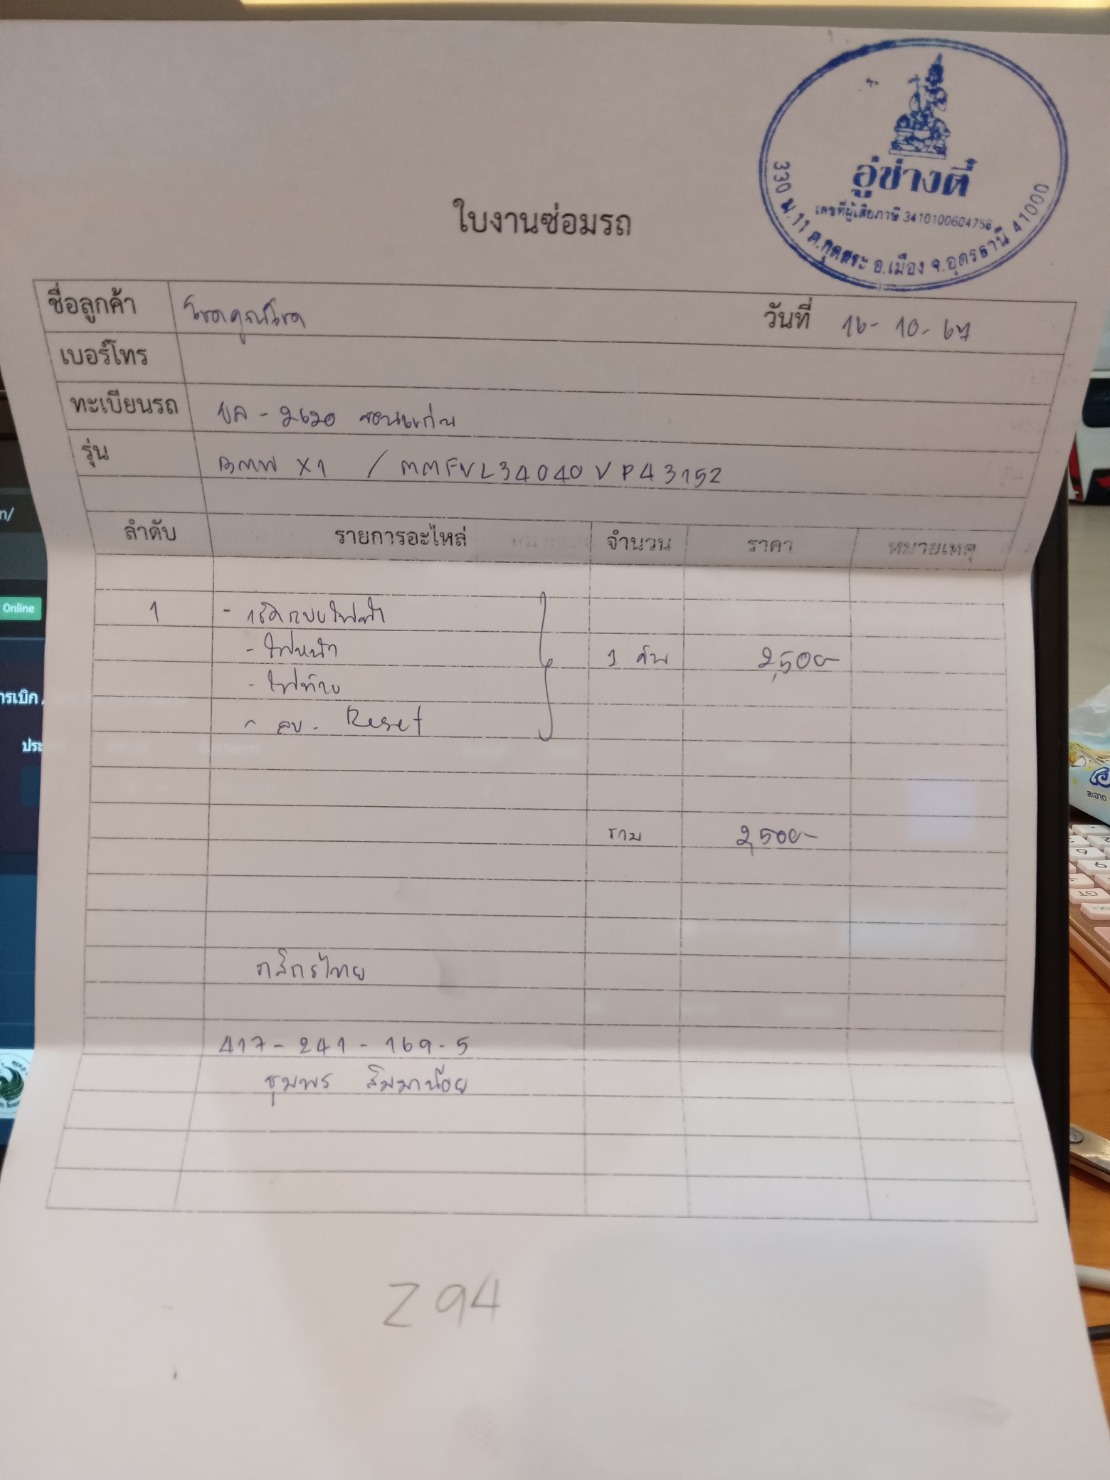 อู่ช่างตี๋
เลขที่ผู้เสียภาษี 3410100604758
330 ม.11 ต.กุดสระ อ.เมือง จ.อุดรธานี 41000
ใบงานซ่อมรถ
ชื่อลูกค้า โชคคูณโชค วันที่ 16-10-67
เบอร์โทร
ทะเบียนรถ ขล-2620 ขอนแก่น
รุ่น BMW X1 / MMFVL34040VP43152
ลำดับ รายการอะไหล่ จำนวน ราคา หมายเหตุ
1 - เช็คระบบไฟฟ้า
- ไฟหน้า 1 คัน 2,500-
- ไฟท้าย
- ลบ. Reset
รวม 2,500-
กสิกรไทย
417-241-169-5
ชุมพร สิมมาน้อย
Z94
n/
Online
ารเบิก
ประ